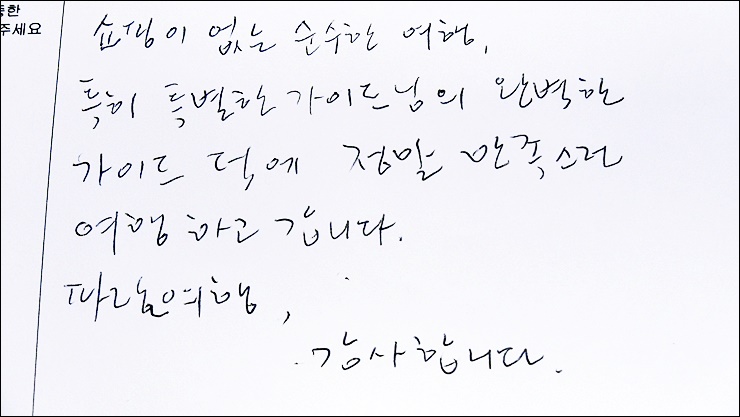 주세요
쇼핑이 없는 순수한 여행,
특히 특별한 가이드님의 완벽한
가이드 덕에 정말 만족스런
여행하고 갑니다.
여행,
감사합니다.